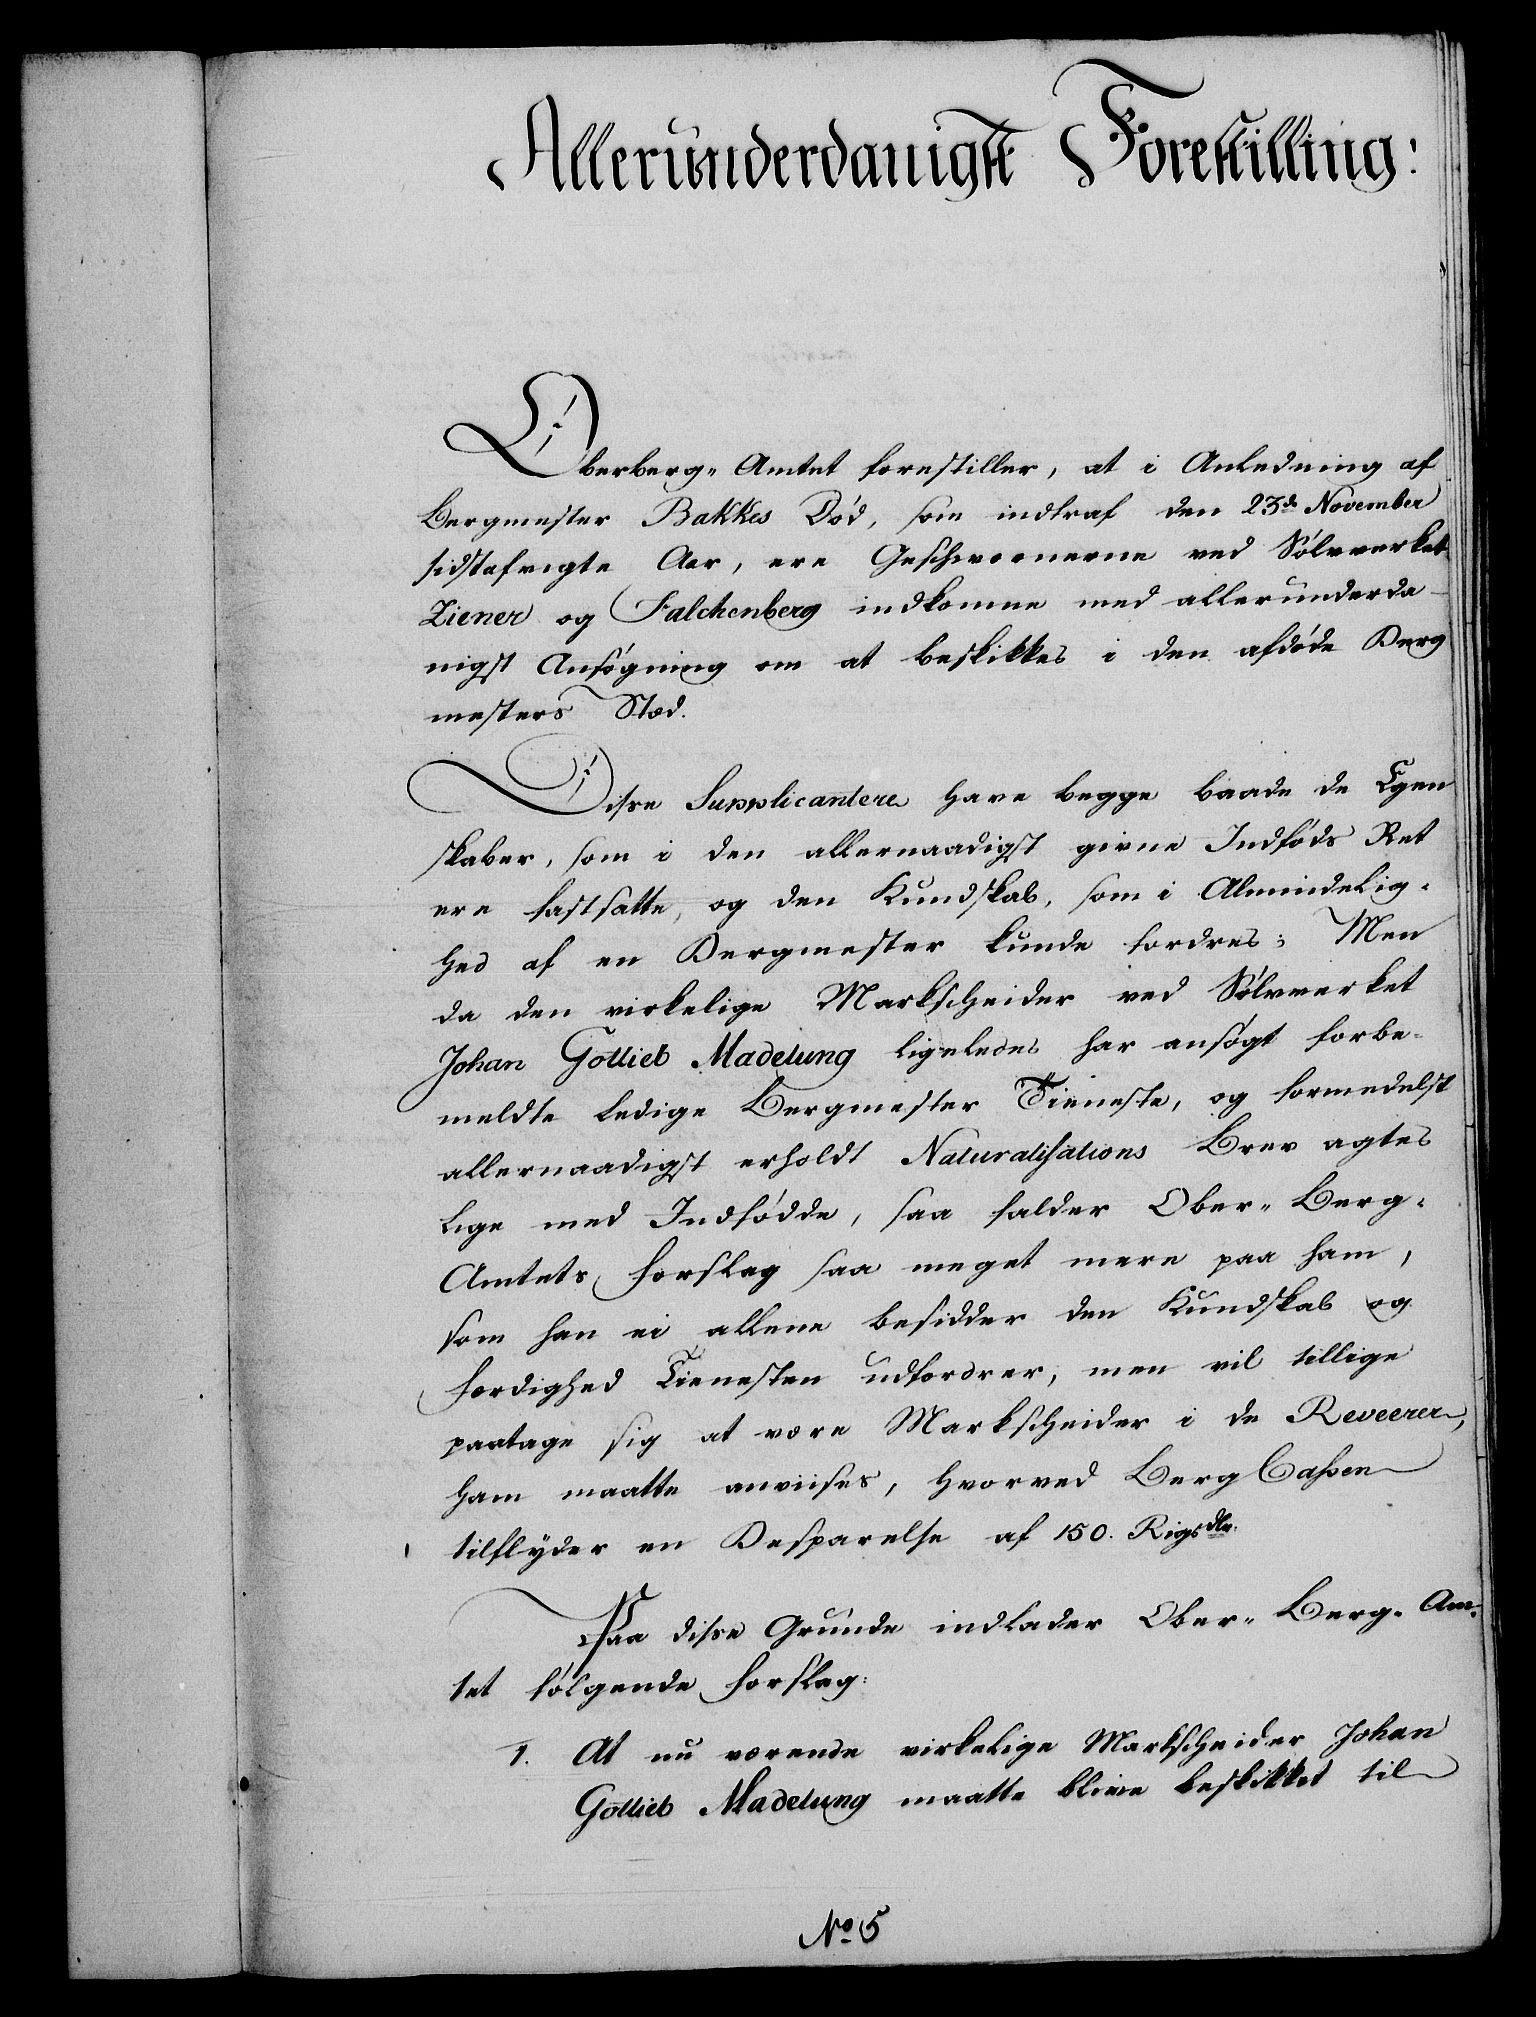 Allerunderdanigst Forestilling:
Oberberg- Amtet forestiller, at i Anledning af
Bergmester Bakkes Død, som indtraf den 23de November
sidstafvigte Aar, ere Geschwornerne ved Sølvverket
Ziener og Falchenberg indkomne med allerunderda-
nigst Ansøgning om at beskikkes i den afdøde Berg
mesters Stæd.
Disse Supplicantere have begge baade de Egen
skaber, som i den allernaadigst givne Indføds Ret
ere fastsatte, og den Kundskab, som i Almindelig-
hed af en Bergmester kunde fordres; Men
da den virkelige Markscheider ved Sølvverket
Johan Gotlieb Madelung ligeledes har ansøgt forbe-
meldte ledige Bergmester Tieneste, og formedelst
allernaadigst erholdt Naturalisations Brev agtes
lige med Indfødde, saa falder Ober- Berg-
Amtets forslag saa meget mere paa ham,
som han ei allene besidder den Kundskab og
færdighed Tienesten udfordrer, men vil tillige
paatage sig at være Markscheider i de Reveerer,
ham maatte anviises, hvorved Berg Cassen
tilflyder en Besparelse af 150. Rigsdlr.
Paa disse Grunde indlader Ober- Berg- Am-
tet følgende forslag:
1. At nu værende virkelige Markscheider Johan
Gotlieb Madelung maatte blive beskikket til
No 5